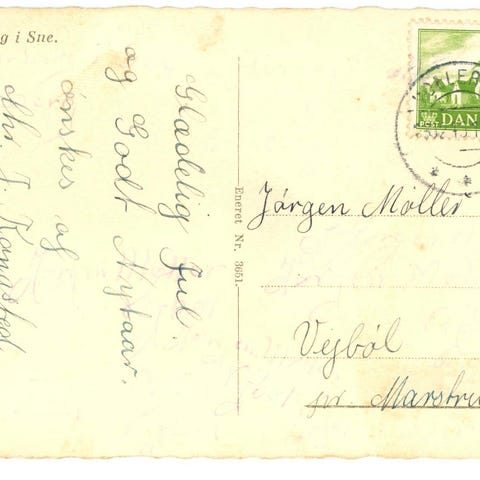 g i Sne.
Glædelig Jul.
og Godt Nytaar,
ønskes af
Kongsted.
Eneret Nr. 3651.
DAN
POST
Jørgen Møller
Vejbøl
pr. Marstru